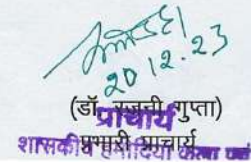 20.12.23
(डॉ. रजनी गुप्ता)
प्राचार्य
प्रभारी प्राचार्य
शासकीय हमीदिया कला एवं